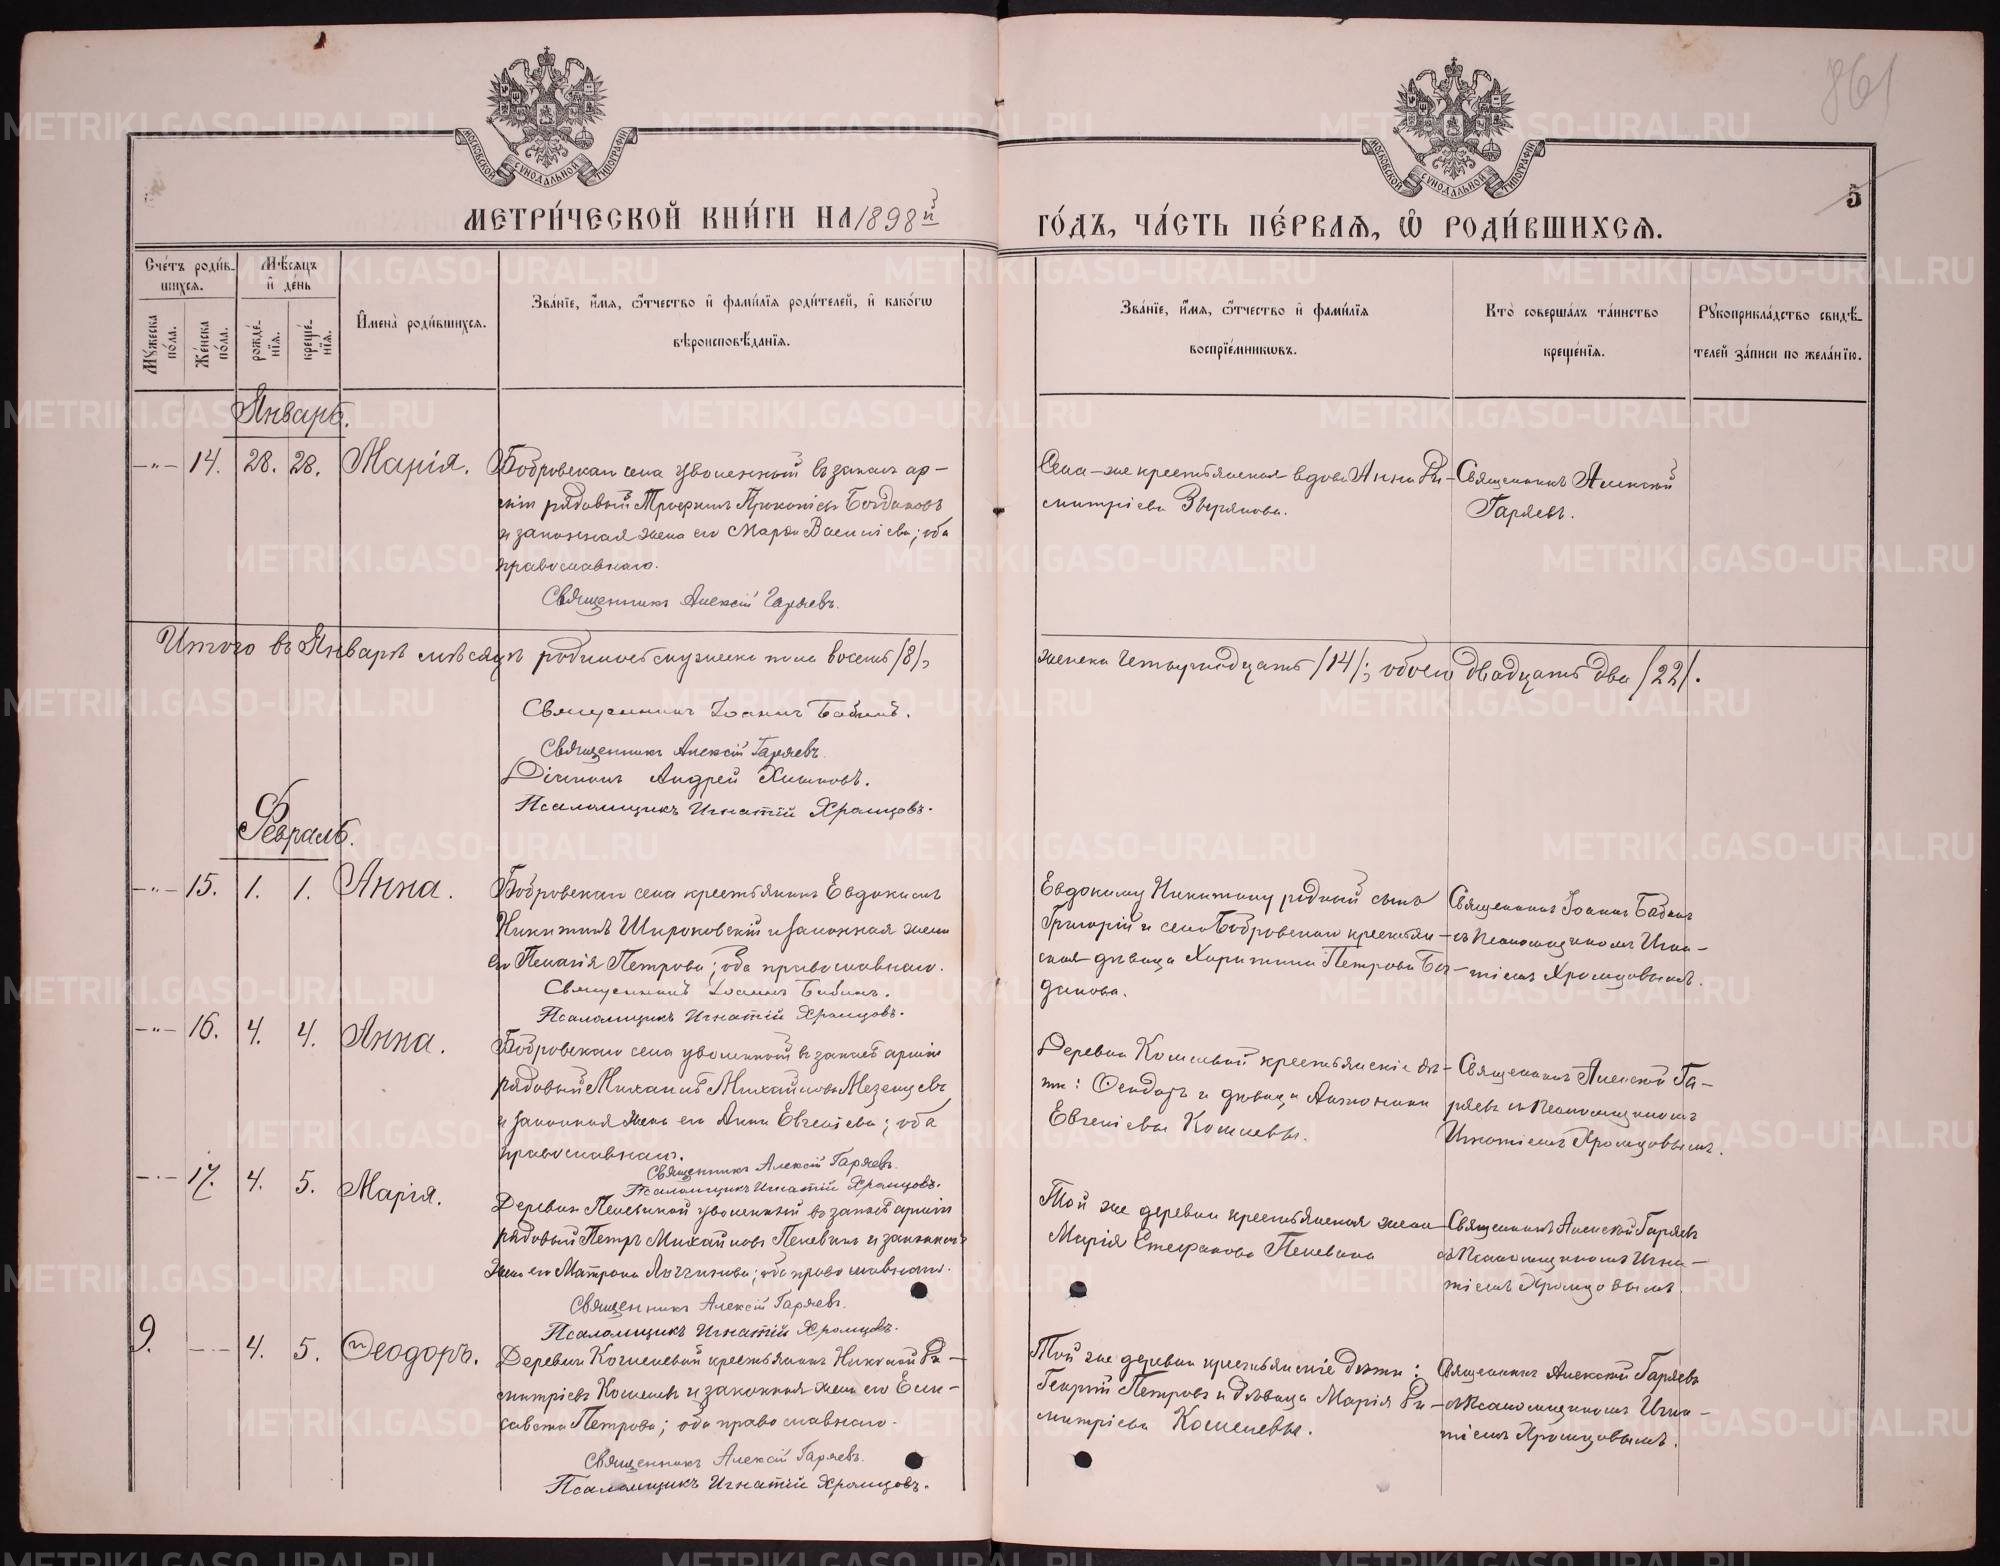 861
5
МОСКОВСКОЙ СѴНОДАЛЬНОЙ ТИПОГРАФІИ
МОСКОВСКОЙ СѴНОДАЛЬНОЙ ТИПОГРАФІИ
МЕТРИ́ЧЕСКОЙ КНИ́ГИ НА 1898й
ГО́ДЪ, ЧА́СТЬ ПЕ́РВАѦ, Ѡ҆ РОДИ́ВШИХСѦ.
Сче́тъ роди́в-
шихсѧ.
Мѣ́сѧцъ
и҆ де́нь
Мꙋ́жеска по́ла.
Же́нска по́ла.
рожде́-
нїѧ.
креще́-
нїѧ.
И҆мена̀ роди́вшихсѧ.
Зва́нїе, и҆́мѧ, ѻ҆́тчество и҆ фами́лїѧ роди́телей, и҆ како́гѡ
вѣроисповѣ́данїѧ.
Зва́нїе, и҆́мѧ, ѻ҆́тчество и҆ фами́лїѧ
воспрїе́мникѡвъ.
Кто̀ соверша́лъ та́инство
креще́нїѧ.
Рꙋкоприкла́дство свидѣ́-
телей за́писи по жела́нїю.
Январь.
—"— 14. 28. 28. Марія.
Бобровскаго села уволенный въ запасъ ар-
міи рядовый Трофимъ Прокопіевъ Богдановъ
и законная жена его Марѳа Василіева; оба
православнаго.
Священникъ Алексій Гаряевъ.
Села-же крестьянская вдова Анна Ди-
митріева Звѣрякова.
Священникъ Алексій
Гаряевъ.
Итого въ Январѣ мѣсяцѣ родилось мужска пола восемь /8/,
женска четырнадцать /14/; обоего двадцать два /22/.
Священникъ Іоаннъ Бабинъ.
Священникъ Алексій Гаряевъ.
Діаконъ Андрей
Псаломщикъ Игнатій Храмцовъ.
Февраль.
—"— 15. 1. 1. Анна.
Бобровскаго села крестьянинъ Евдокимъ
Никитинъ Широковскій и законная жена
его Пелагія Петрова; оба православнаго.
Священникъ Іоаннъ Бабинъ.
Псаломщикъ Игнатій Храмцовъ.
Евдокиму Никитину родной сынъ
Григорій и села Бобровскаго крестьян-
ская дѣвица Харитина Петрова Бог-
данова.
Священникъ Іоаннъ Бабинъ
съ псаломщикомъ Игна-
тіемъ Храмцовымъ.
—"— 16. 4. 4. Анна.
Бобровскаго села уволенный въ запасъ арміи
рядовый Михаилъ Михайловъ Мезенцевъ
и законная жена его Анна Евгеніева; оба
православнаго.
Священникъ Алексій Гаряевъ.
Псаломщикъ Игнатій Храмцовъ.
Деревни Кошевой крестьянскіе дѣ-
ти: Ѳеодоръ и дѣвица Антонина
Евгеніевы Кошелевы.
Священникъ Алексій Га-
ряевъ съ псаломщикомъ
Игнатіемъ Храмцовымъ.
—"— 17. 4. 5. Марія.
Деревни Пелевиной уволенный въ запасъ арміи
рядовый Петръ Михайловъ Пелевинъ и законная
жена его Матрона Логгинова; оба православнаго.
Священникъ Алексій Гаряевъ.
Псаломщикъ Игнатій Храмцовъ.
Той же деревни крестьянская жена
Марія Стефанова Пелевина
Священникъ Алексій Гаряевъ
съ псаломщикомъ Игна-
тіемъ Храмцовымъ.
9. —"— 4. 5. Ѳеодоръ.
Деревни Кошелевой крестьянинъ Николай Ди-
митріевъ Кошелевъ и законная жена его Ели-
савета Петрова; оба православнаго.
Священникъ Алексій Гаряевъ.
Псаломщикъ Игнатій Храмцовъ.
Той же деревни крестьянскіе дѣти:
Георгій Петровъ и дѣвица Марія Ди-
митріева Кошелевы.
Священникъ Алексій Гаряевъ
съ псаломщикомъ Игна-
тіемъ Храмцовымъ.
METRIKI.GASO-URAL.RU